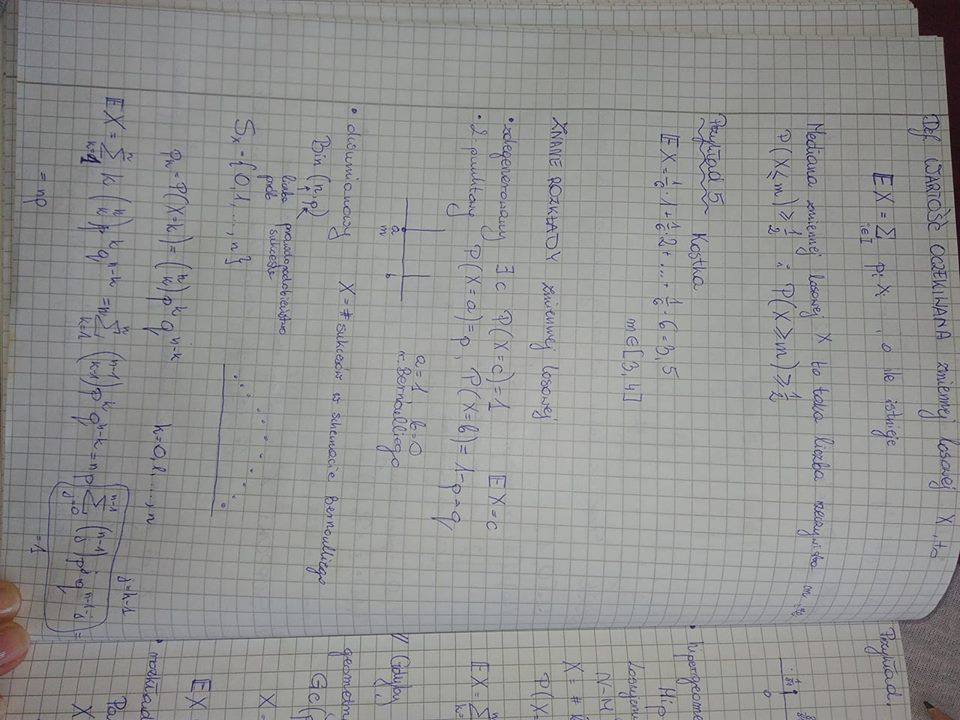 Def. WARTOŚĆ OCZEKIWANA zmiennej losowej X, to
EX = ∑_{i∈I} p_i x_i , o ile istnieje
Mediana zmiennej losowej X to taka liczba rzeczywista m, że
P(X≤m) ≥ 1/2 i P(X≥m) ≥ 1/2
Przykład 5
Kostka
EX = 1/6 · 1 + 1/6 · 2 + ... + 1/6 · 6 = 3,5
m ∈ [3,4]
ZNANE ROZKŁADY zmiennej losowej
• zdegenerowany ∃c P(X=c)=1 EX=c
• 2-punktowy P(X=a)=p, P(X=b)=1-p=q
a=1, b=0
r. Bernoulliego
a b
m
• dwumianowy X = # sukcesów w schemacie Bernoulliego
Bin (n, p)
liczba prawdopodobieństwo
prób sukcesu
S_x = {0,1,...,n}
p_k = P(X=k) = (n k) p^k q^{n-k} k=0,1,...,n
j=k-1
EX = ∑_{k=1}^{n} k (n k) p^k q^{n-k} = n ∑_{k=1}^{n} (n-1 k-1) p^k q^{n-k} = np ∑_{j=0}^{n-1} (n-1 j) p^j q^{n-1-j} =
=1
= np
Przykład.
1/84
0
• hipergeome
Hip
Losujem
N-M
X = #
P(X=
EX = ∑
k=
// Gdyby
geometr
Ge(p
X =
EX
• rozkład
X